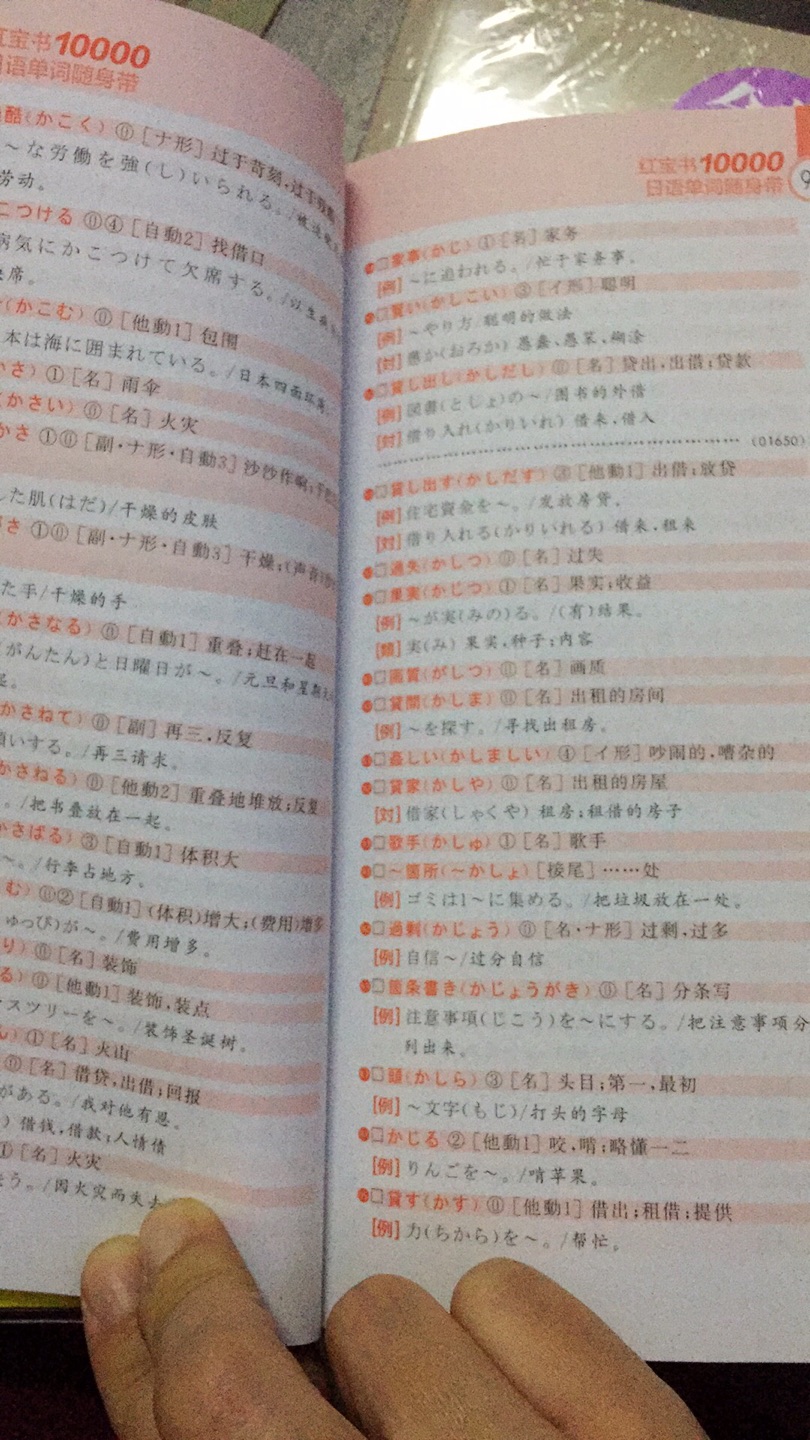 红宝书10000
日语单词随身带
酷(かこく) ⓪ [ナ形] 过于苛刻,过于
～な労働を強(し)いられる。/被迫
劳动。
こつける ⓪④ [自動2] 找借口
病気にかこつけて欠席する。/以生病
席。
(かこむ) ⓪ [他動1] 包围
本は海に囲まれている。/日本四面环海。
さ) ① [名] 雨伞
(かさい) ⓪ [名] 火灾
かさ ①⓪ [副·ナ形·自動3] 沙沙作响;
した肌(はだ)/干燥的皮肤
さ ①⓪ [副·ナ形·自動3] 干燥;(声音)
た手/干燥的手
(かさなる) ⓪ [自動1] 重叠;赶在一起
(がんたん)と日曜日が～。/元旦和星期
起。
かさねて) ⓪ [副] 再三,反复
願いする。/再三请求。
かさねる) ⓪ [他動2] 重叠地堆放;反复
。/把书叠放在一起。
かさばる) ③ [自動1] 体积大
～。/行李占地方。
む) ⓪② [自動1] (体积)增大;(费用)增多
ゅっぴ)が～。/费用增多。
り) ⓪ [名] 装饰
る) ⓪ [他動1] 装饰,装点
スツリーを～。/装饰圣诞树。
い) ① [名] 火山
⓪ [名] 借贷,出借;回报
がある。/我对他有恩。
) 借钱,借款;人情债
① [名] 火灾
う。/因火灾而失去
红宝书10000
日语单词随身带
9
□家事(かじ) ① [名] 家务
[例] ～に追われる。/忙于家务事。
□賢い(かしこい) ③ [イ形] 聪明
[例] ～やり方/聪明的做法
[対] 愚か(おろか) 愚蠢、愚笨、糊涂
□貸し出し(かしだし) ⓪ [名] 贷出,出借;贷款
[例] 図書(としょ)の～/图书的外借
[対] 借り入れ(かりいれ) 借来,借入
(01650)
□貸し出す(かしだす) ③ [他動1] 出借;放贷
[例] 住宅資金を～。/发放房贷。
[対] 借り入れる(かりいれる) 借来,租来
□過失(かしつ) ⓪ [名] 过失
□果実(かじつ) ① [名] 果实;收益
[例] ～が実(みの)る。/(有)结果。
[類] 実(み) 果实,种子;内容
□画質(がしつ) ⓪ [名] 画质
□貸間(かしま) ⓪ [名] 出租的房间
[例] ～を探す。/寻找出租房。
□姦しい(かしましい) ④ [イ形] 吵闹的,嘈杂的
□貸家(かしや) ⓪ [名] 出租的房屋
[対] 借家(しゃくや) 租房;租借的房子
□歌手(かしゅ) ① [名] 歌手
□～箇所(～かしょ) [接尾] ……处
[例] ゴミは1～に集める。/把垃圾放在一处。
□過剰(かじょう) ⓪ [名·ナ形] 过剩,过多
[例] 自信～/过分自信
□箇条書き(かじょうがき) ⓪ [名] 分条写
[例] 注意事項(じこう)を～にする。/把注意事项分
列出来。
□頭(かしら) ③ [名] 头目;第一,最初
[例] ～文字(もじ)/打头的字母
□かじる ② [他動1] 咬,啃;略懂一二
[例] りんごを～。/啃苹果。
□貸す(かす) ⓪ [他動1] 借出;租借;提供
[例] 力(ちから)を～。/帮忙。